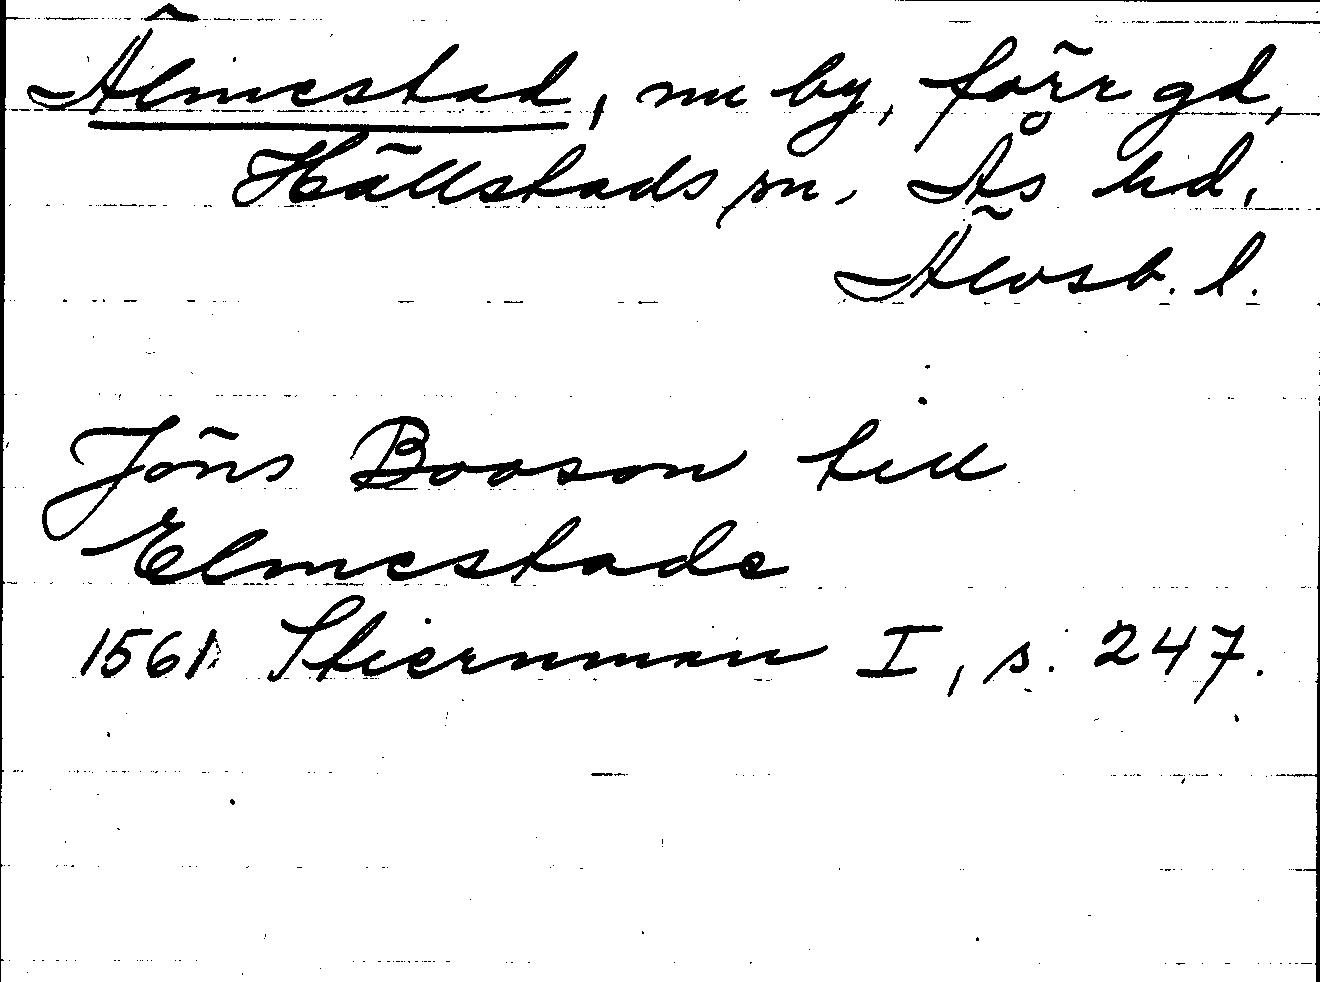 Älmestad, nu by, förr gd,
Hällstads sn, Ås hd,
Älvsb. l.
Jöns Booson till
Elmestade
1561 Stiernman I, s. 247.